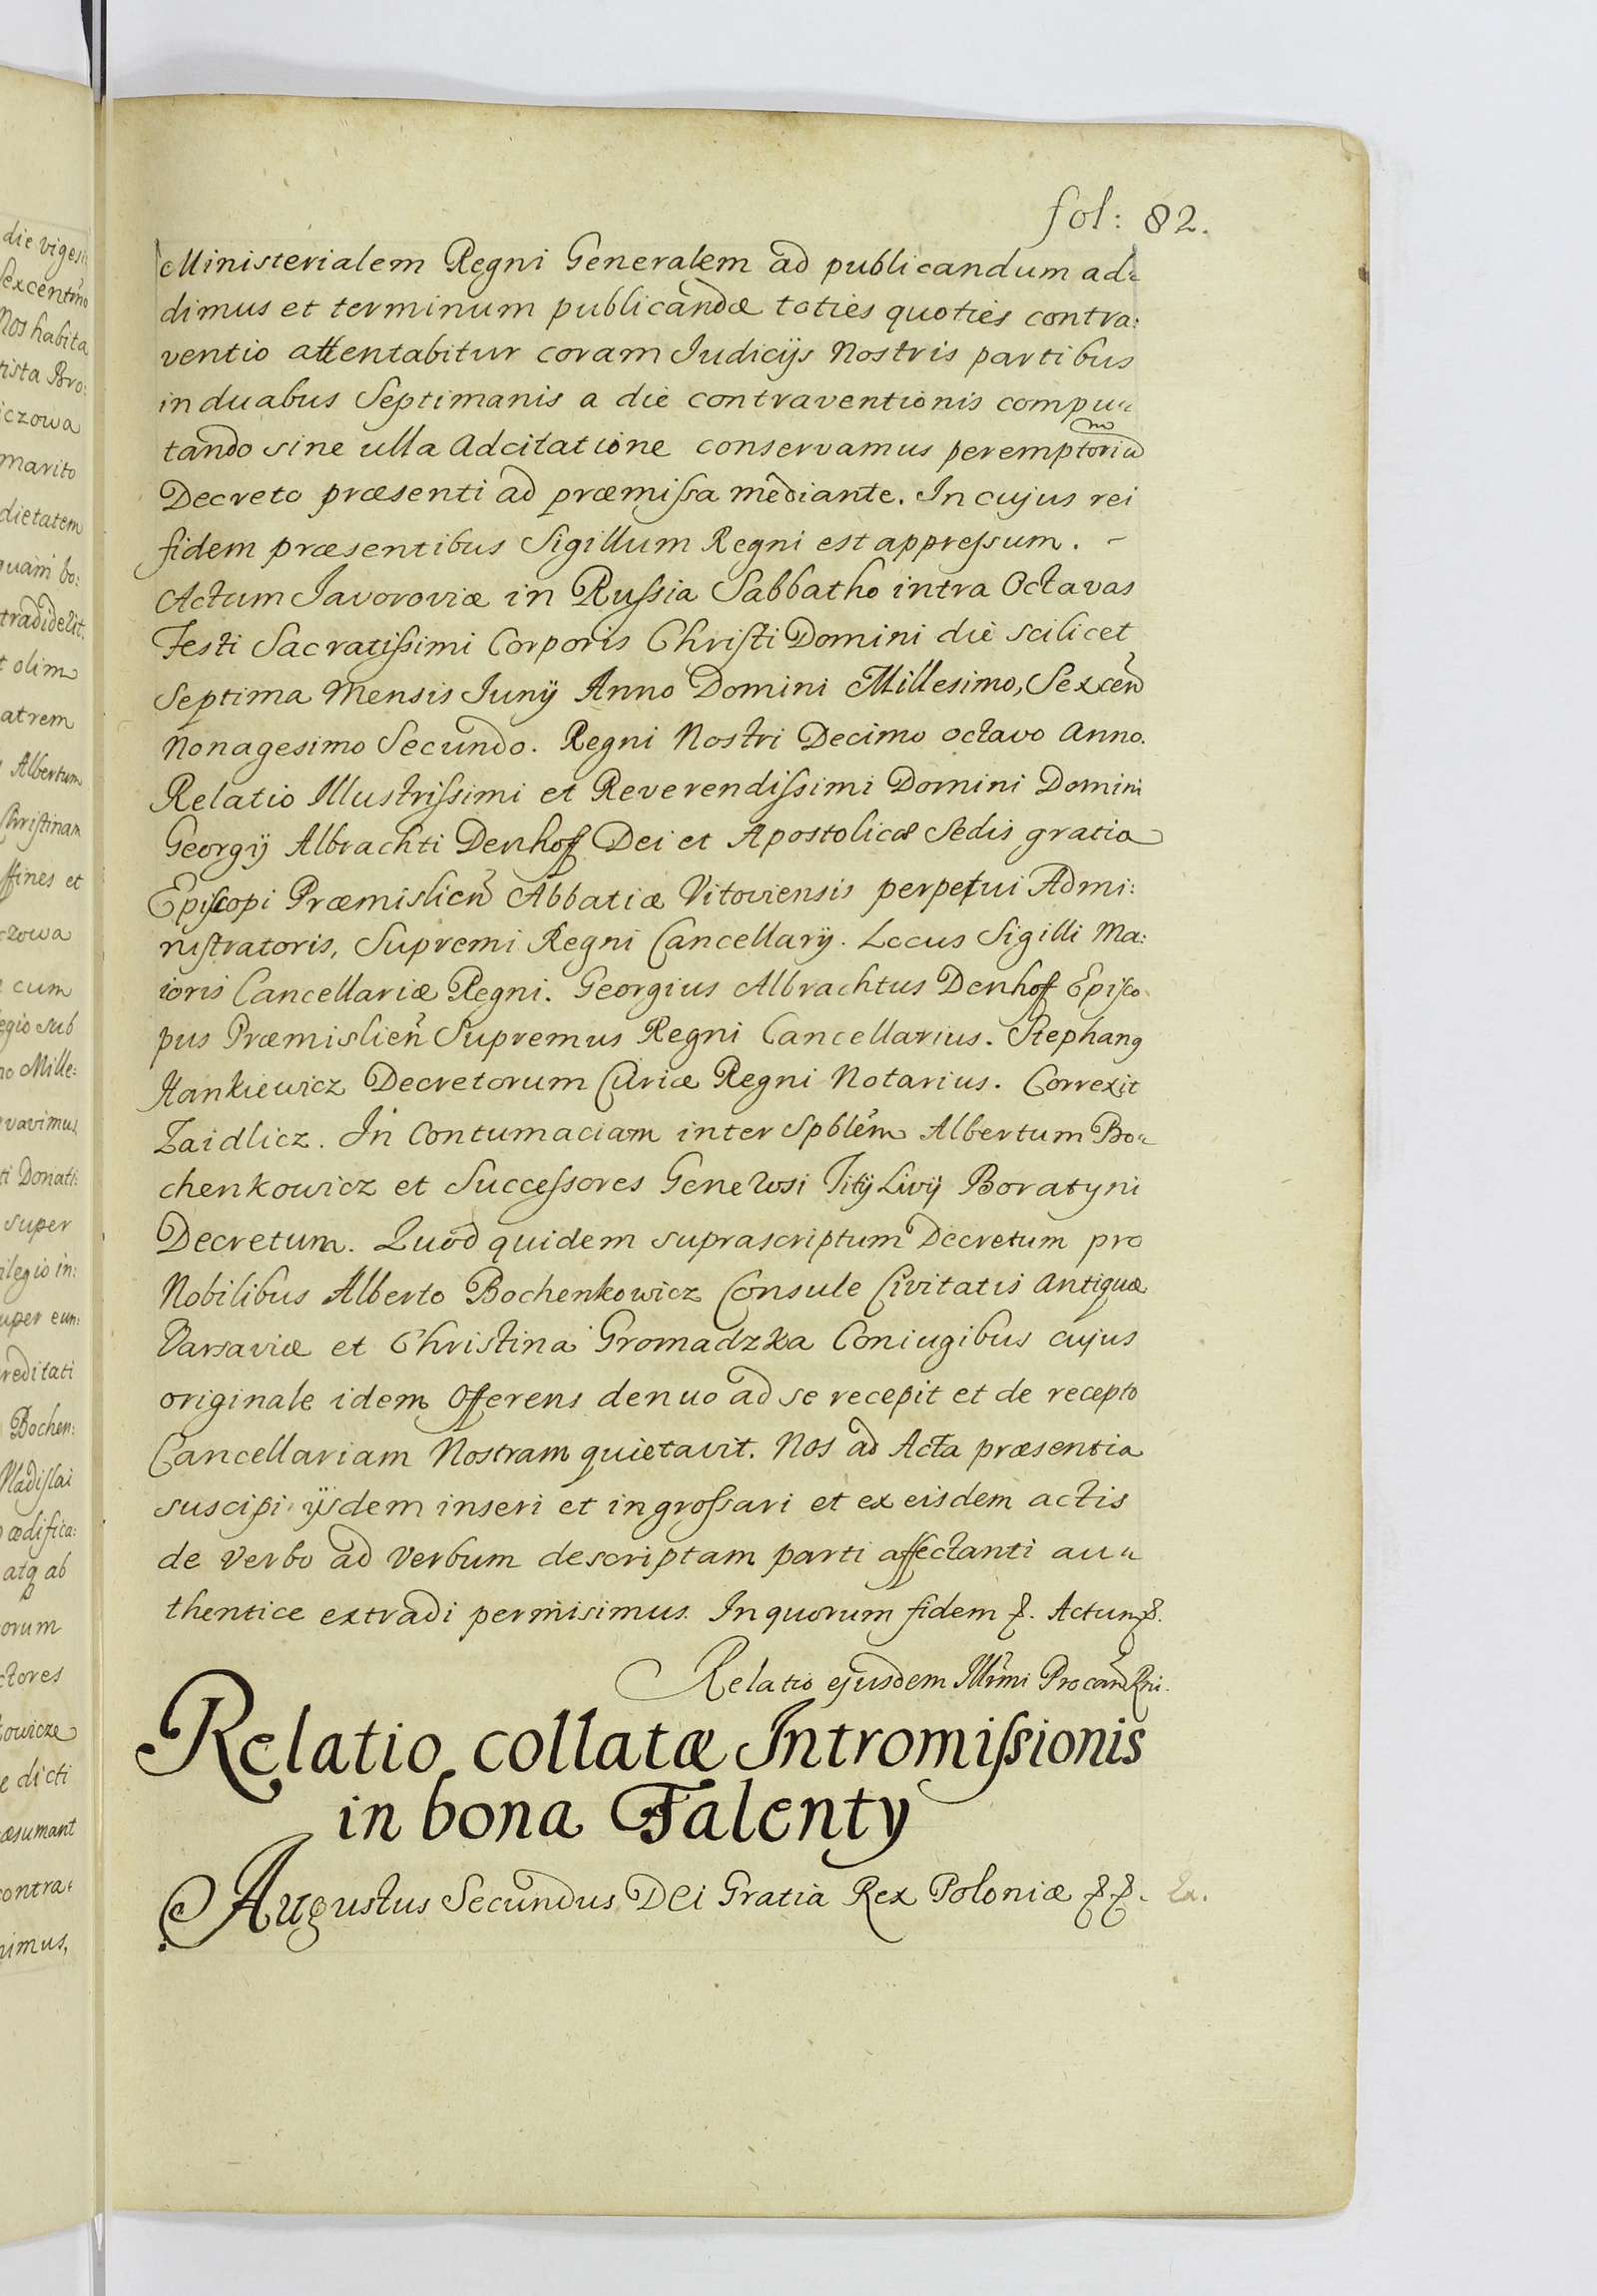 fol: 82.
Ministerialem Regni Generalem ad publicandum ad-
dimus et terminum publicandæ toties quoties contra:
ventio attentabitur coram Iudicijs Nostris partibus
in duabus Septimanis a die contraventionis compu-
tando sine ulla Adcitatione conservamus peremptorium
Decreto præsenti ad præmissa mediante. In cujus rei
fidem præsentibus Sigillum Regni est appressum. -
Actum Javoroviæ in Russia Sabbatho intra Octavas
Festi Sacratissimi Corporis Christi Domini die scilicet
Septima Mensis Junij Anno Domini Millesimo, Sexcen̄
Nonagesimo Secundo. Regni Nostri Decimo octavo Anno.
Relatio Illustrissimi et Reverendissimi Domini Domini
Georgij Albrachti Denhoff Dei et Apostolicæ Sedis gratia
Episcopi Præmislien̄ Abbatiæ Vitoviensis perpetui Admi:
nistratoris, Supremi Regni Cancellarij. Locus Sigilli Ma:
ioris Cancellariæ Regni. Georgius Albrachtus Denhoff Episco
pus Præmislien̄ Supremus Regni Cancellarius. Stephanꝰ
Hankiewicz Decretorum Curiæ Regni Notarius. Correxit
Zaidlicz. In Contumaciam inter Spblem̄ Albertum Bo-
chenkowicz et Successores Generosi Titij Livij Boratyni
Decretum. Quod quidem suprascriptum Decretum pro
Nobilibus Alberto Bochenkowicz Consule Civitatis Antiquæ
Varsaviæ et Christina Gromadzka Coniugibus cujus
originale idem Offerens denuo ad se recepit et de recepto
Cancellariam Nostram quietavit. Nos ad Acta præsentia
suscipi ijsdem inseri et ingrossari et ex eisdem actis
de verbo ad verbum descriptam parti affectanti au-
thentice extradi permisimus. In quorum fidem &. Actum &.
Relatio ejusdem Illmi Procan̄ Rni.
Relatio collatæ Intromissionis
in bona Falenty
Augustus Secundus Dei Gratia Rex Poloniæ &&.